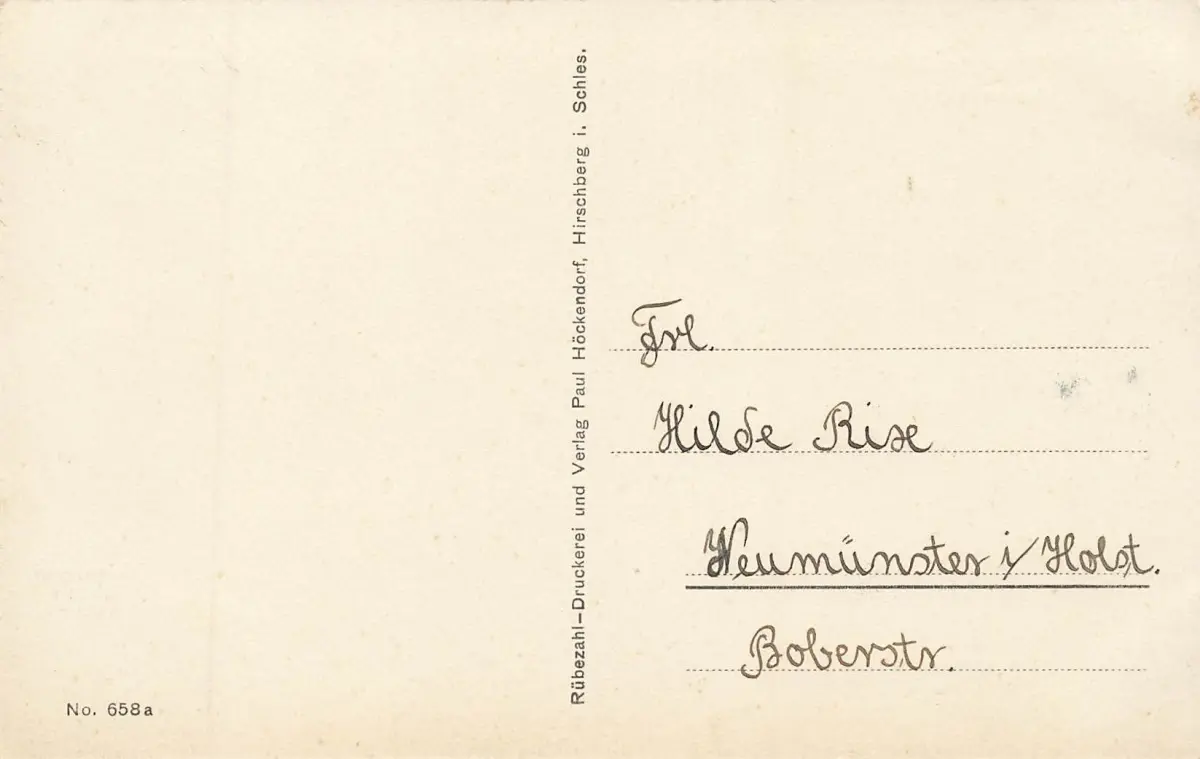 Rübezahl-Druckerei und Verlag Paul Höckendorf, Hirschberg i. Schles.
Frl.
Hilde Rixe
Neumünster i/Holst.
Boberstr.
No. 658a